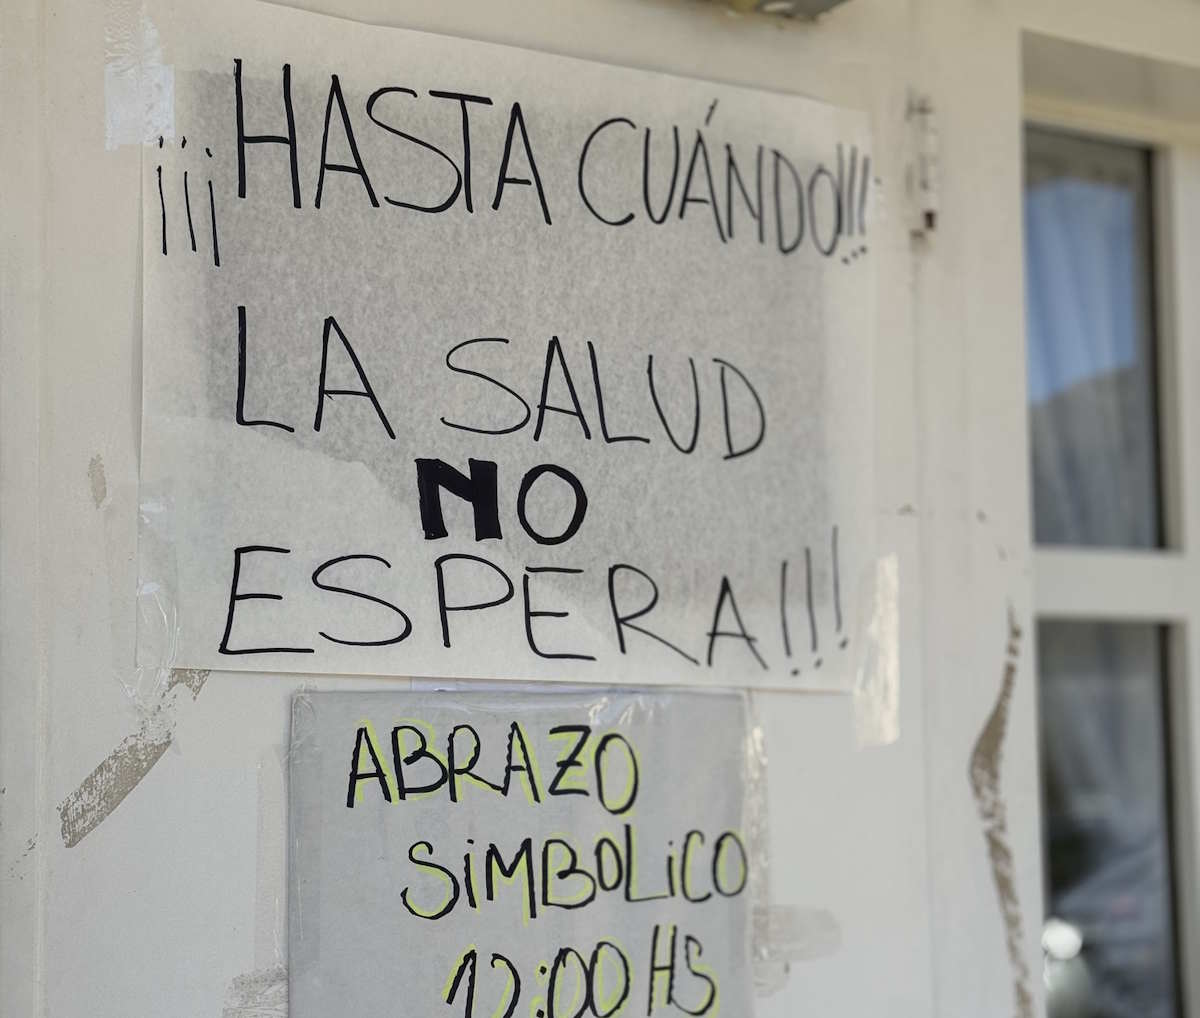 ¡¡¡HASTA CUÁNDO!!!
LA SALUD
NO
ESPERA!!!
ABRAZO
SiMBOLiCO
12:00 HS